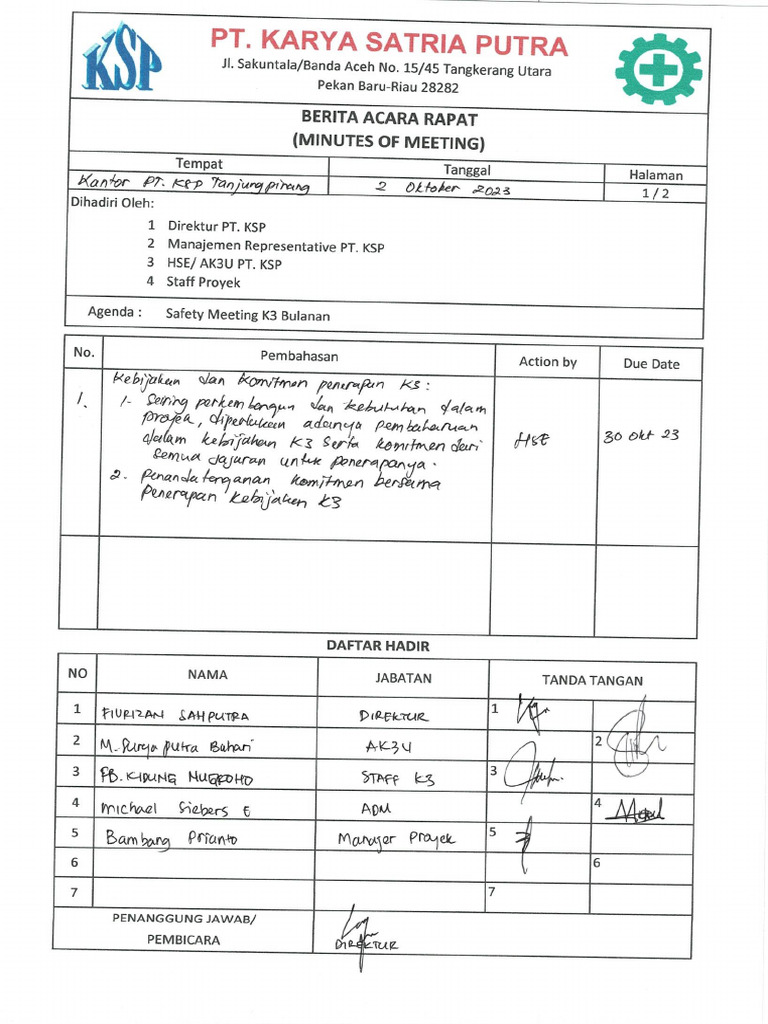 KSP
PT. KARYA SATRIA PUTRA
Jl. Sakuntala/Banda Aceh No. 15/45 Tangkerang Utara
Pekan Baru-Riau 28282
BERITA ACARA RAPAT
(MINUTES OF MEETING)
Tempat Tanggal Halaman
Kantor PT. KSP Tanjungpinang 2 Oktober 2023 1 / 2
Dihadiri Oleh:
1 Direktur PT. KSP
2 Manajemen Representative PT. KSP
3 HSE/ AK3U PT. KSP
4 Staff Proyek
Agenda : Safety Meeting K3 Bulanan
No. Pembahasan Action by Due Date
Kebijakan dan komitmen penerapan K3 :
1. 1- Seiring perkembangan dan kebutuhan dalam
proyek, diperlukan adanya pembaharuan
dalam kebijakan K3 serta komitmen dari HSE 30 Okt 23
semua jajaran untuk penerapanya.
2. Penandatanganan komitmen bersama
Penerapan kebijakan K3
DAFTAR HADIR
NO NAMA JABATAN TANDA TANGAN
1 FIURIZAN SAHPUTRA DIREKTUR 1
2 M. Surya Putra Bahari AK3U 2
3 FB. KIDUNG NUGROHO STAFF K3 3
4 Michael Siebers E ADM 4
5 Bambang Prianto Manager Proyek 5
6 6
7 7
PENANGGUNG JAWAB/
PEMBICARA DIREKTUR